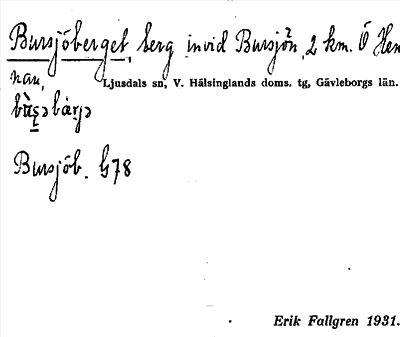 Bursjöberget, berg invid Bursjön, 2 km. Ö Hen
nan,
Ljusdals sn, V. Hälsinglands doms. tg, Gävleborgs län.
Bursjöb. G78
Erik Fallgren 1931.